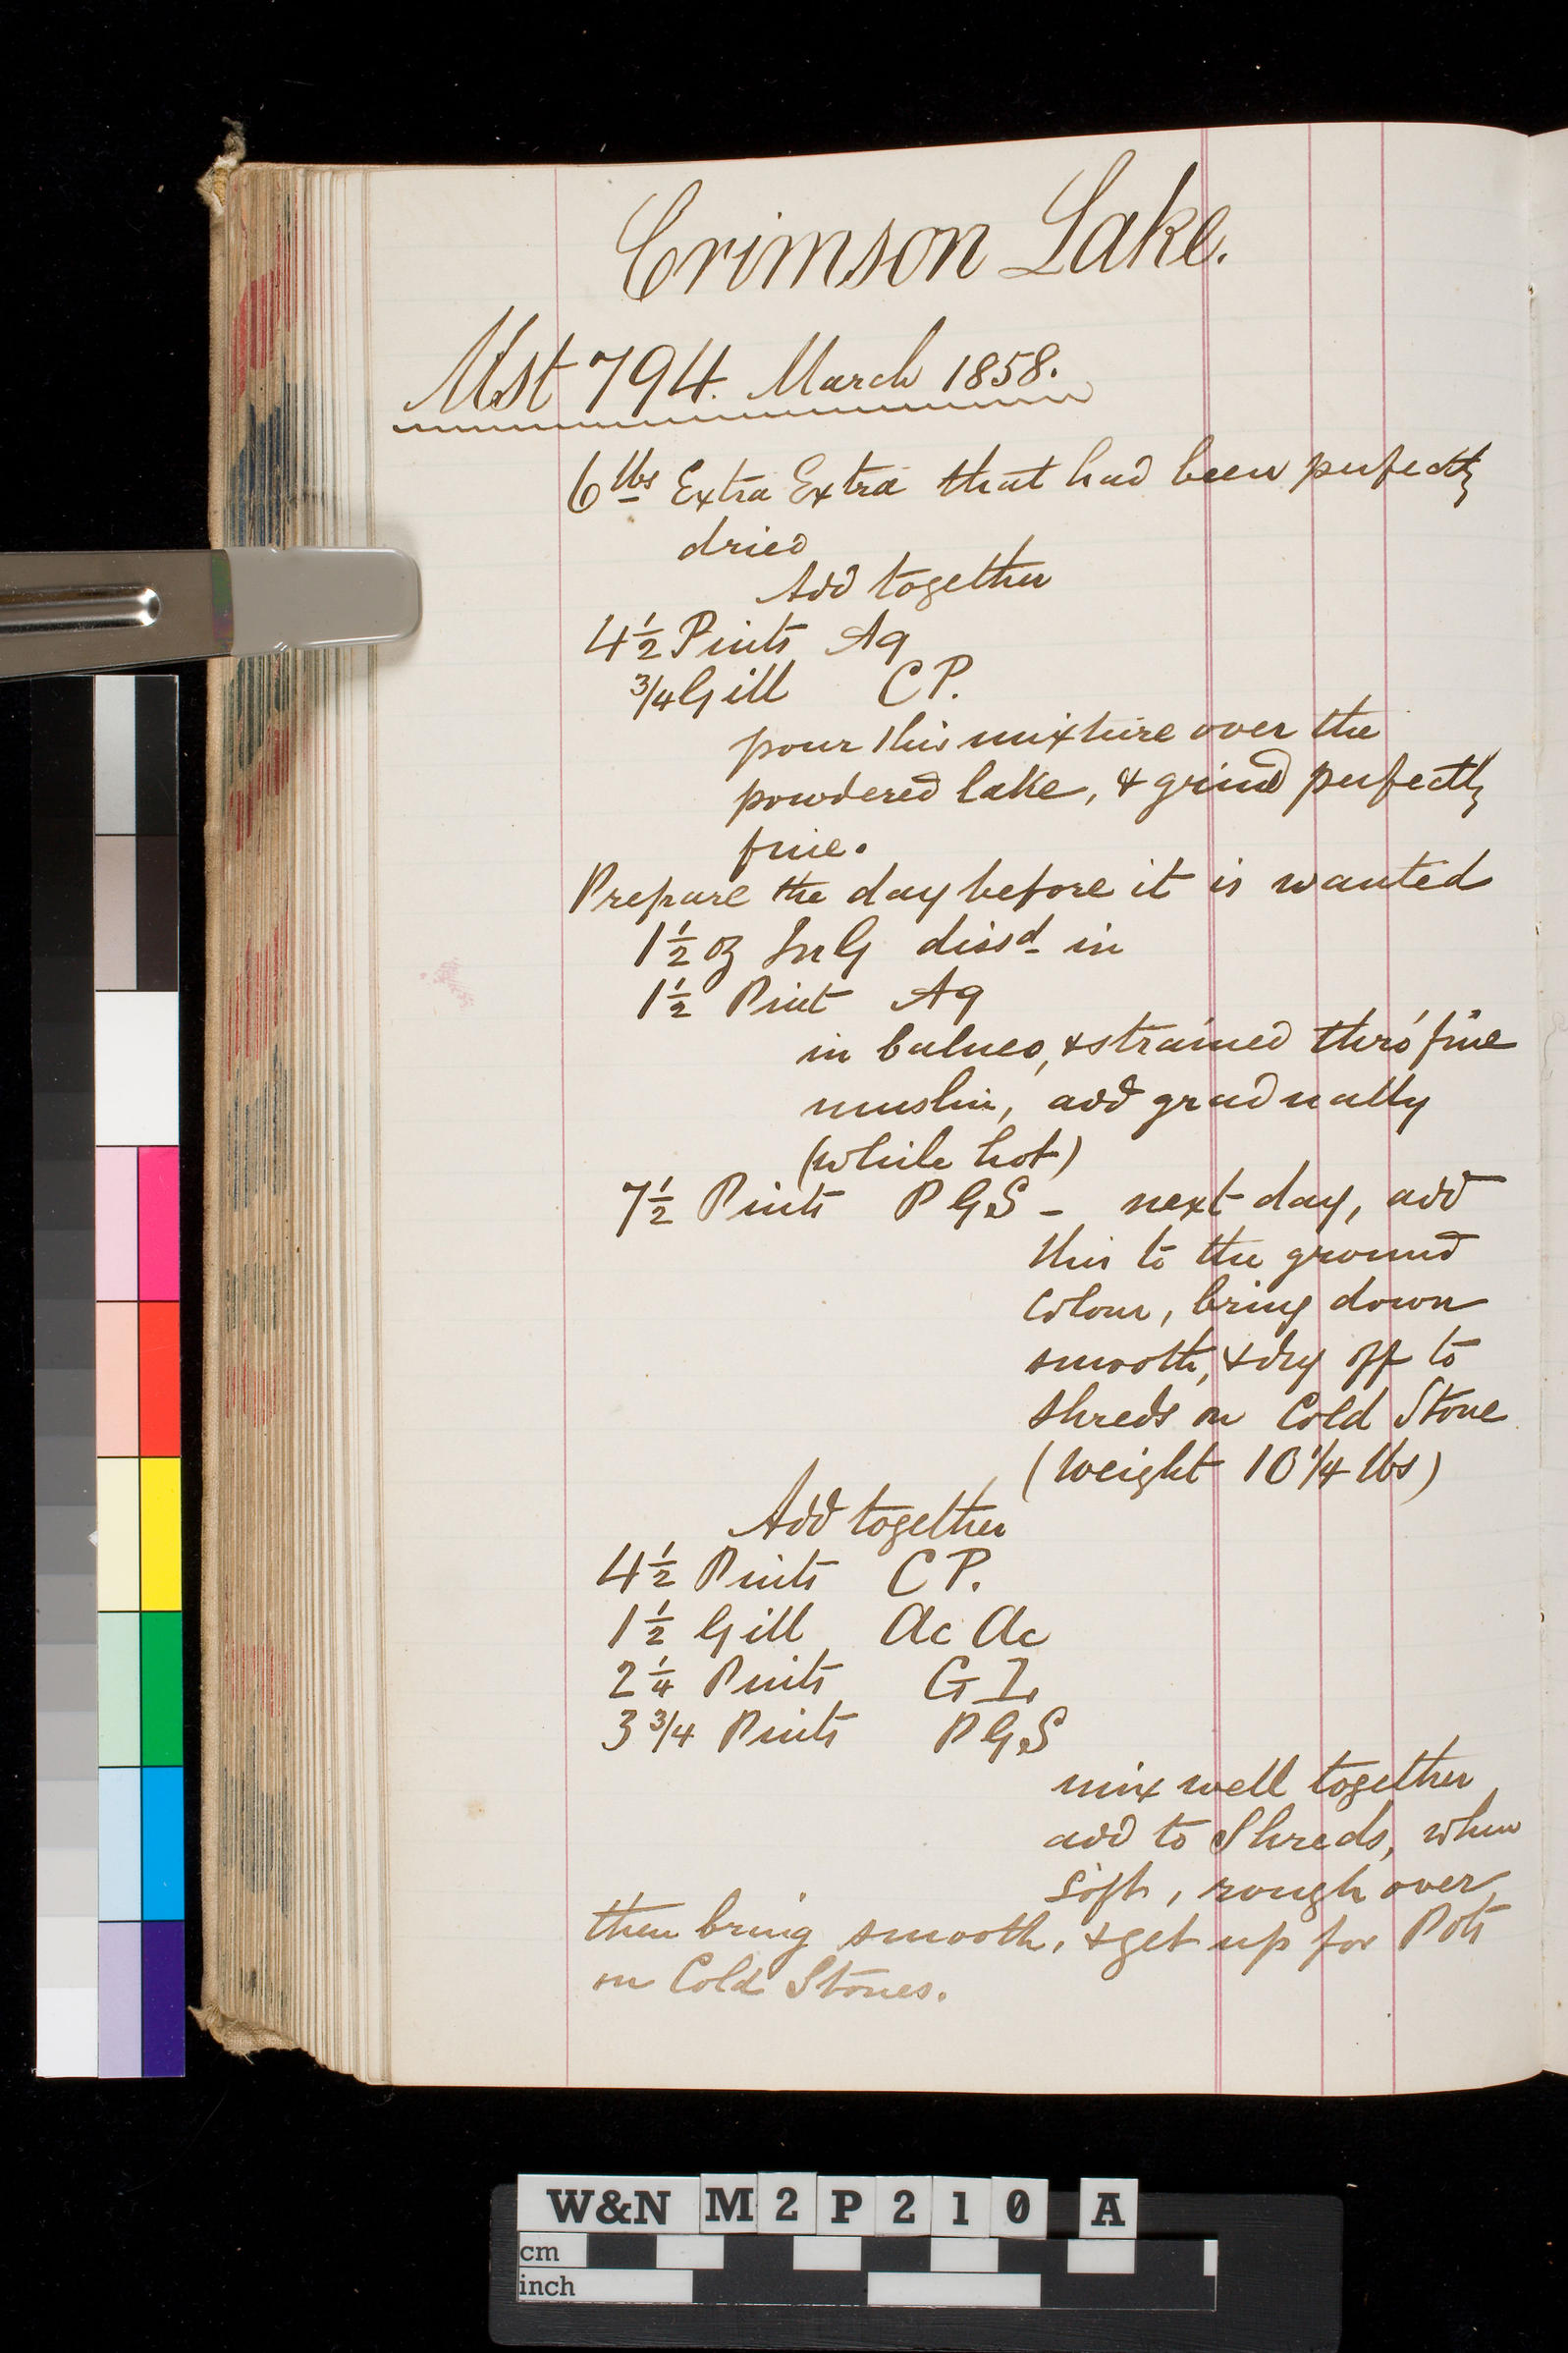 Crimson Lake.
Mst 794. March 1858.
6 lbs Extra Extra that had been perfectly
dried
Add together
4½ Pints Aq
3/4 Gill CP.
pour this mixture over the
powdered lake, & grind perfectly
fine.
Prepare the day before it is wanted
1½ oz InG dissd in
1½ Pint Aq
in balneo, & strained thro' fine
muslin, add gradually
(while hot)
7½ Pints PGS - next day, add
this to the ground
colour, bring down
smooth, & dry off to
shreds on Cold Stone
(weight 10 1/4 lbs)
Add together
4½ Pints CP.
1½ Gill Ac Ac
2¼ Pints
3 3/4 Pints PGS
mix well together
add to Shreds, when
soft, rough over,
then bring smooth, & get up for Pots
on Cold Stones.
W&N M2P210 A
cm
inch